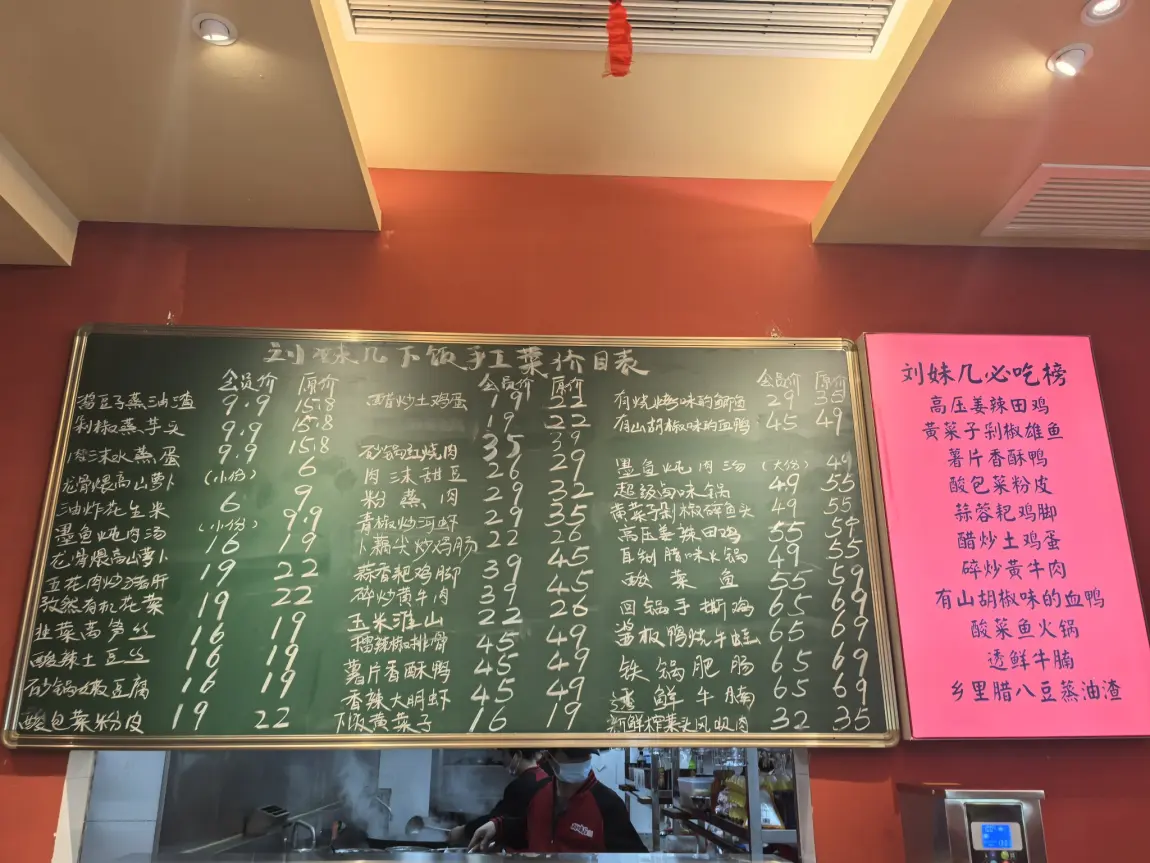 刘妹几下饭手工菜价目表
会员价 原价
蒸油渣 9.9 15.8
剁椒蒸芋头 9.9 15.8
水蒸蛋 9.9 15.8
龙骨煨高山萝卜 (小份) 6
油炸花生米 6 9
墨鱼炖肉汤 (小份) 9.9
龙骨煨高山萝卜 16 19
五花肉炒猪肝 19 22
有机花菜 19 22
韭菜莴笋丝 16 19
酸辣土豆丝 16 19
砂锅嫩豆腐 16 19
酸包菜粉皮 19 22
会员价 原价
醋炒土鸡蛋 19 22
19 22
砂锅红烧肉 35 39
肉沫甜豆 26 29
粉蒸肉 29 32
青椒炒河虾 29 35
藕尖炒鸡肠 22 26
蒜香耙鸡脚 39 45
碎炒黄牛肉 39 45
玉米淮山 22 26
椒排骨 45 49
薯片香酥鸭 45 49
香辣大明虾 45 49
下饭黄菜子 16 19
会员价 原价
有烧烤味的鲫鱼 29 35
有山胡椒味的血鸭 45 49
墨鱼炖肉汤 (大份) 49
超级卤味锅 49 55
黄菜子剁椒碎鱼头 49 55
高压姜辣田鸡 55 59
自制腊味火锅 49 55
酸菜鱼 55 59
回锅手撕鸡 65 69
酱板鸭烧牛蛙 65 69
铁锅肥肠 65 69
透鲜牛腩 65 69
新鲜榨菜头风吸肉 32 35
刘妹几必吃榜
高压姜辣田鸡
黄菜子剁椒雄鱼
薯片香酥鸭
酸包菜粉皮
蒜蓉耙鸡脚
醋炒土鸡蛋
碎炒黄牛肉
有山胡椒味的血鸭
酸菜鱼火锅
透鲜牛腩
乡里腊八豆蒸油渣